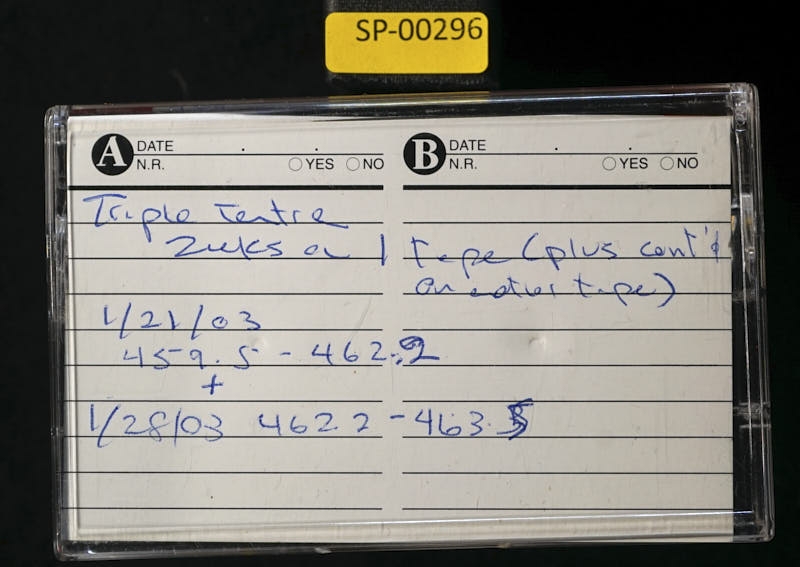 SP-00296
A DATE . . B DATE . .
N.R. YES NO N.R. YES NO
Triple
2 wks on 1 tape (plus cont'd
on tape)
1/21/03
459.5 - 462.2
+
1/28/03 462.2 - 463.5